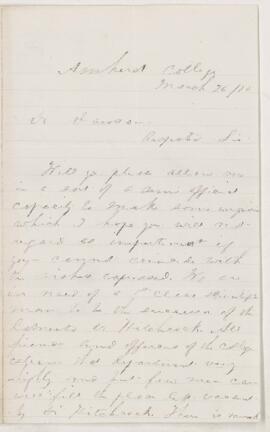 Amherst College
March 26/
Dr Dawson
Respected Sir
Will you please allow me
in a sort of a semi official
capacity to make some inquiries
which I hope you will not
regard as impertinent if
you cannot coincide with
the wishes expressed. We are
in need of a 1st Class
man to be the successor of the
lamented Dr Hitchcock. All
friends and officers of the College
esteem that department very
highly and but few men can
well fill the place left vacant
by Dr Hitchcock. There is